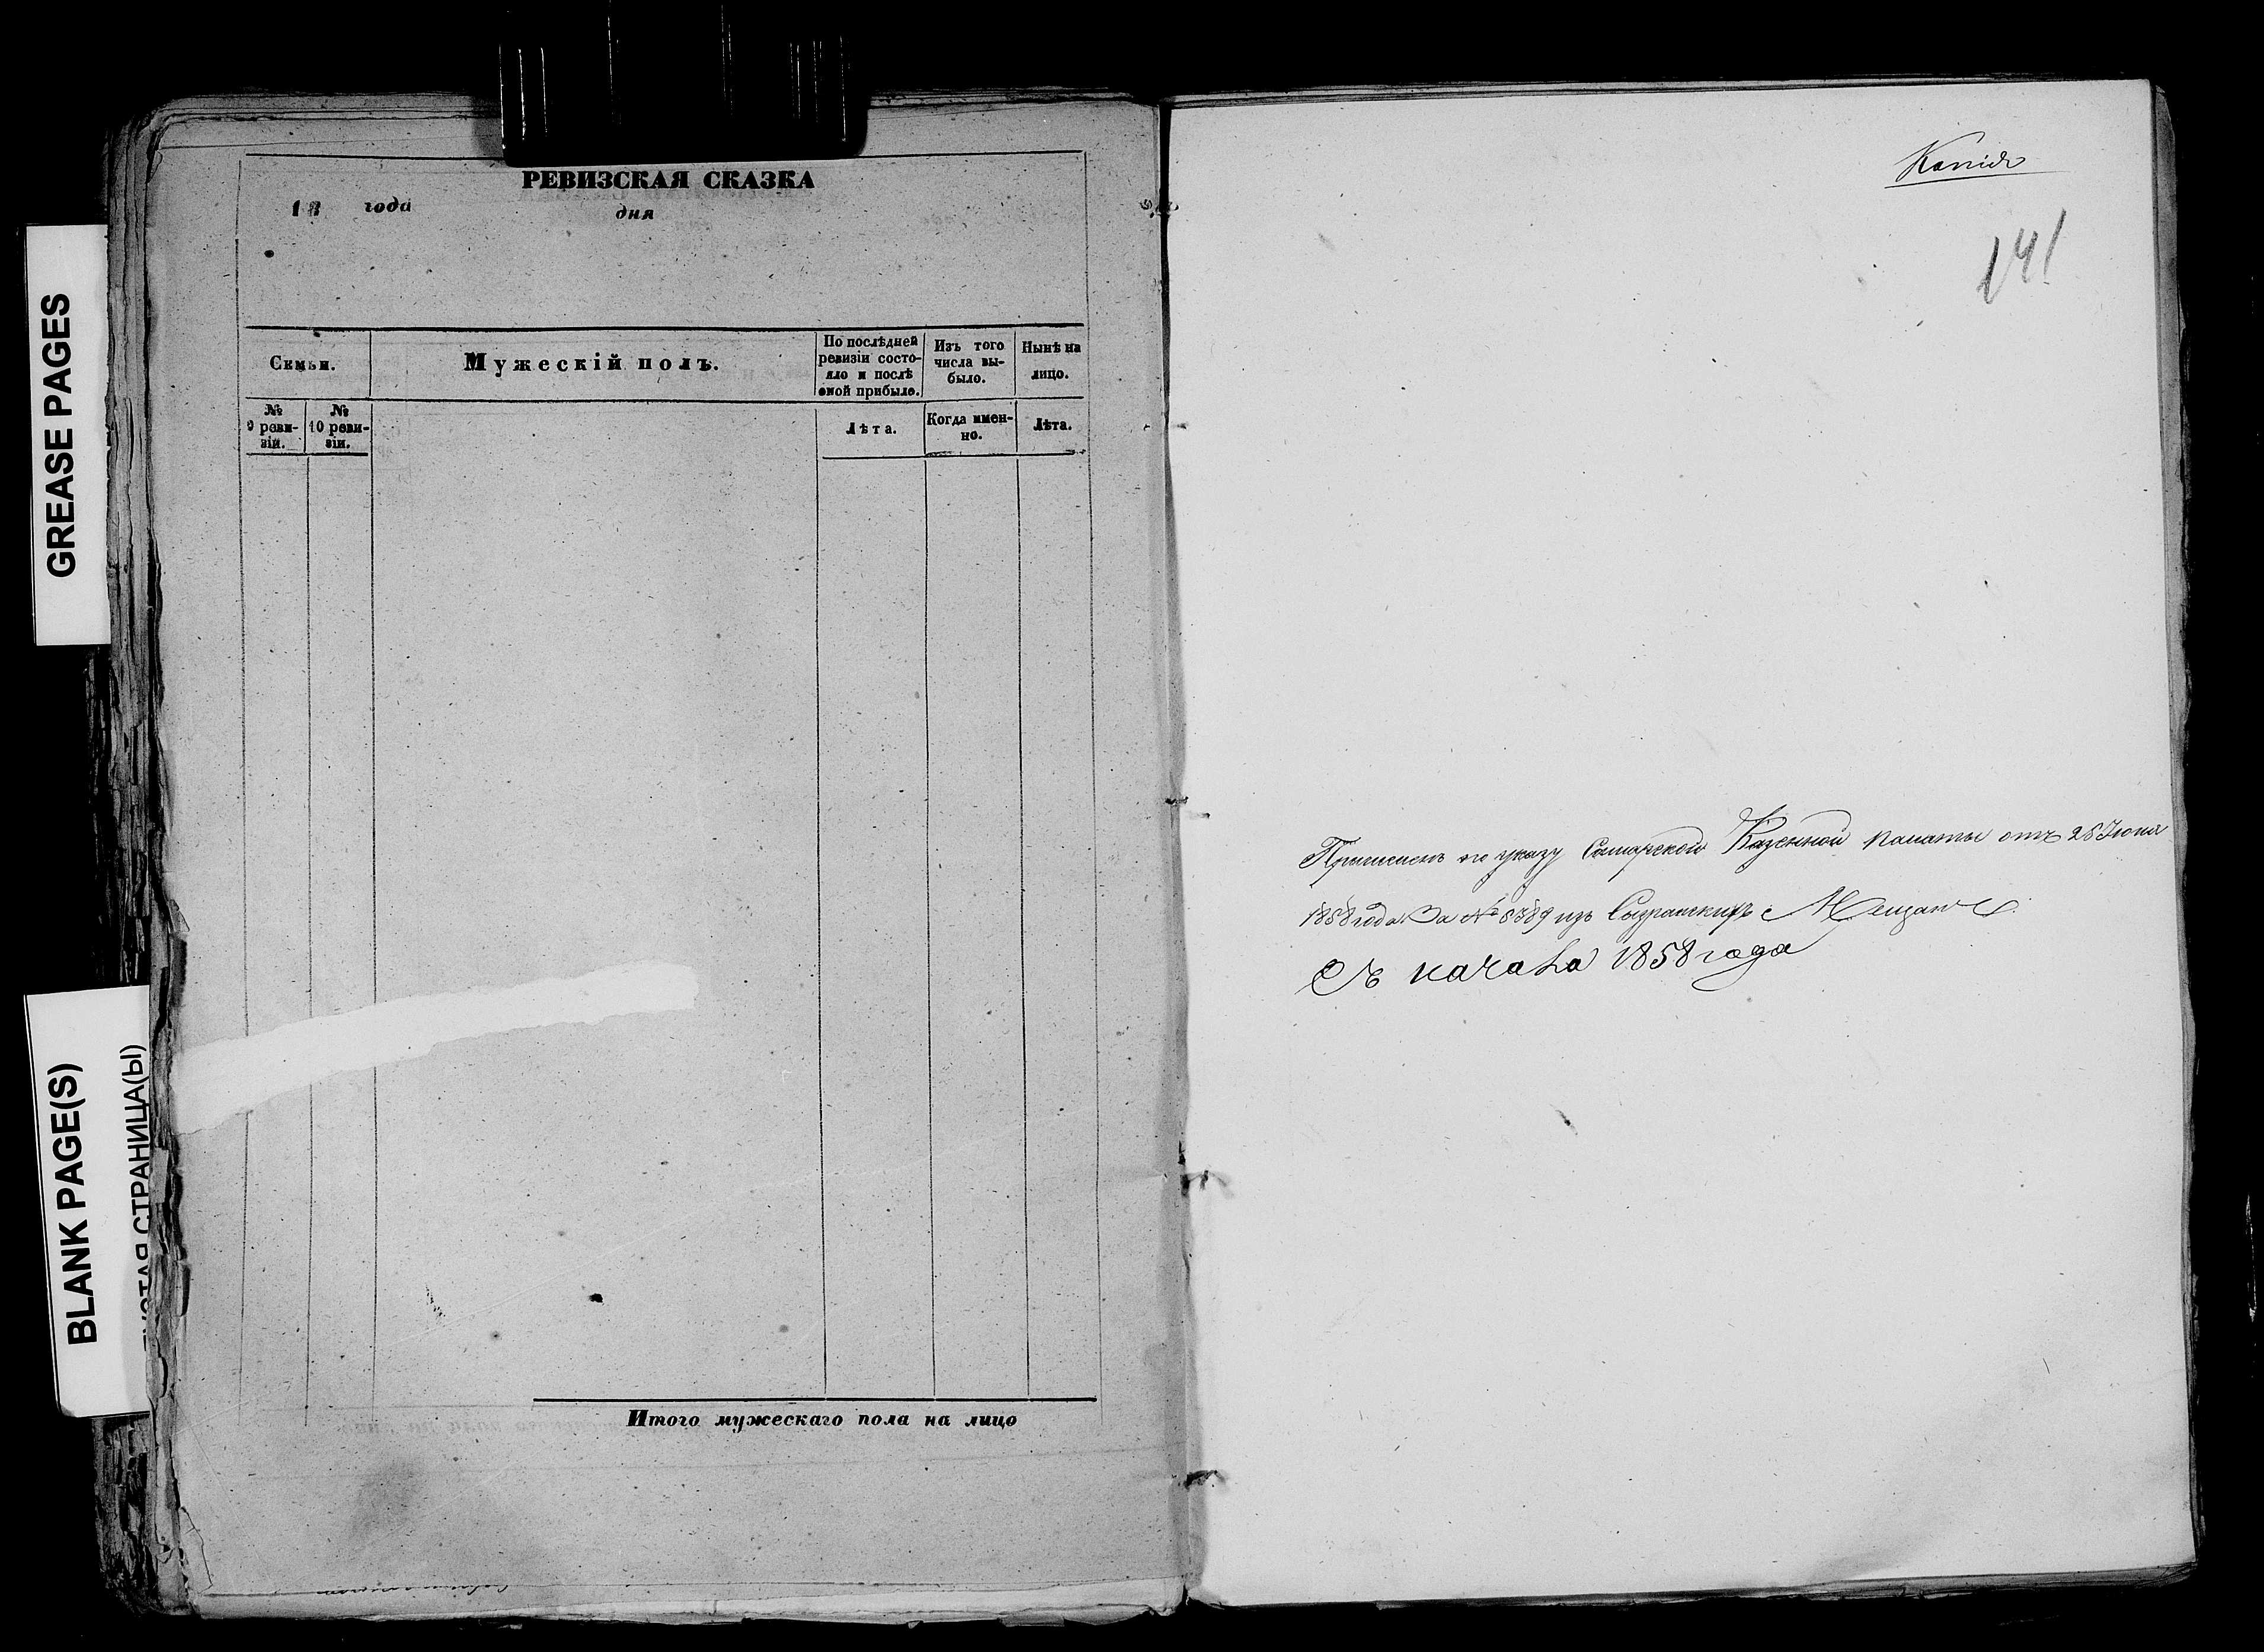 GREASE PAGES
BLANK PAGE(S)
СТРАНИЦА(Ы)
РЕВИЗСКАЯ СКАЗКА
18 года дня
Семьи.
Мужескій полъ.
По послѣдней ревизіи состо-
яло и послѣ
оной прибыло.
Изъ того
числа вы-
было.
Нынѣ на
лицо.
№
9 реви-
зіи.
№
10 реви-
зіи.
Лѣта.
Когда имен-
но.
Лѣта.
Итого мужескаго пола на лицо
Копія
141
по указу Самарской Казенной палаты отъ 25 Іюня
1858 года За № 8789 изъ Сызранскихъ Мещанъ
Съ начала 1858 года